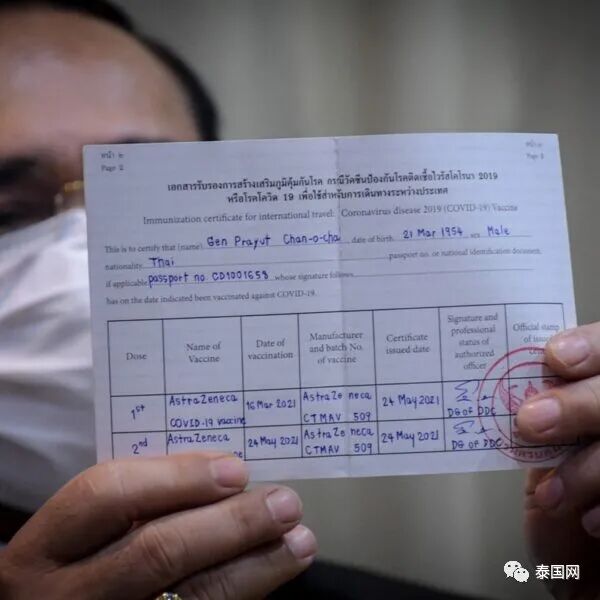 หน้า ๒
Page 2
หน้า ๓
Page 3
เอกสารรับรองการสร้างเสริมภูมิคุ้มกันโรค กรณีวัคซีนป้องกันโรคติดเชื้อไวรัสโคโรนา 2019
หรือโรคโควิด 19 เพื่อใช้สำหรับการเดินทางระหว่างประเทศ
Immunization certificate for international travel: Coronavirus disease 2019 (COVID-19) Vaccine
This is to certify that (name) Gen Prayut Chan-o-cha date of birth 21 Mar 1954 sex Male
nationality Thai passport no. or national identification document,
if applicable passport no CD1001658 whose signature follows
has on the date indicated been vaccinated against COVID-19.
Dose Name of Vaccine Date of vaccination Manufacturer and batch No. of vaccine Certificate issued date Signature and professional status of authorized officer Official stamp of issued
1st AstraZeneca COVID-19 vaccine 16 Mar 2021 AstraZeneca CTMAV 509 24 May 2021 DG OF DDC
2nd AstraZeneca 24 May 2021 AstraZeneca CTMAV 509 24 May 2021 DG OF DDC
泰国网